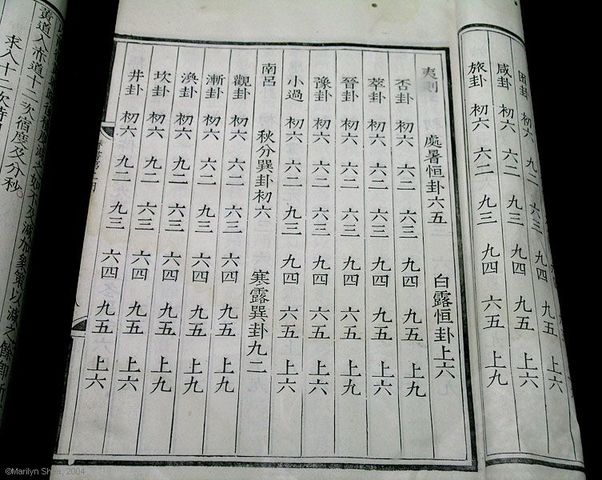 困卦 初六 九二 六三 九四 九五 上六
咸卦 初六 六二 九三 九四 九五 上六
旅卦 初六 六二 九三 九四 六五 上九
夷則 處暑恒卦六五 白露恒卦上六
否卦 初六 六二 六三 九四 九五 上九
萃卦 初六 六二 六三 九四 九五 上六
晉卦 初六 六二 六三 九四 六五 上九
豫卦 初六 六二 六三 九四 六五 上六
小過 初六 六二 九三 九四 六五 上六
南呂 秋分巽卦初六 寒露巽卦九二
觀卦 初六 六二 六三 六四 九五 上九
漸卦 初六 六二 九三 六四 九五 上九
渙卦 初六 九二 六三 六四 九五 上九
坎卦 初六 九二 六三 六四 九五 上六
井卦 初六 九二 九三 六四 九五 上六
黃道入赤道十二次宿度及分秒
求入十二次時
©Marilyn Shea, 2004